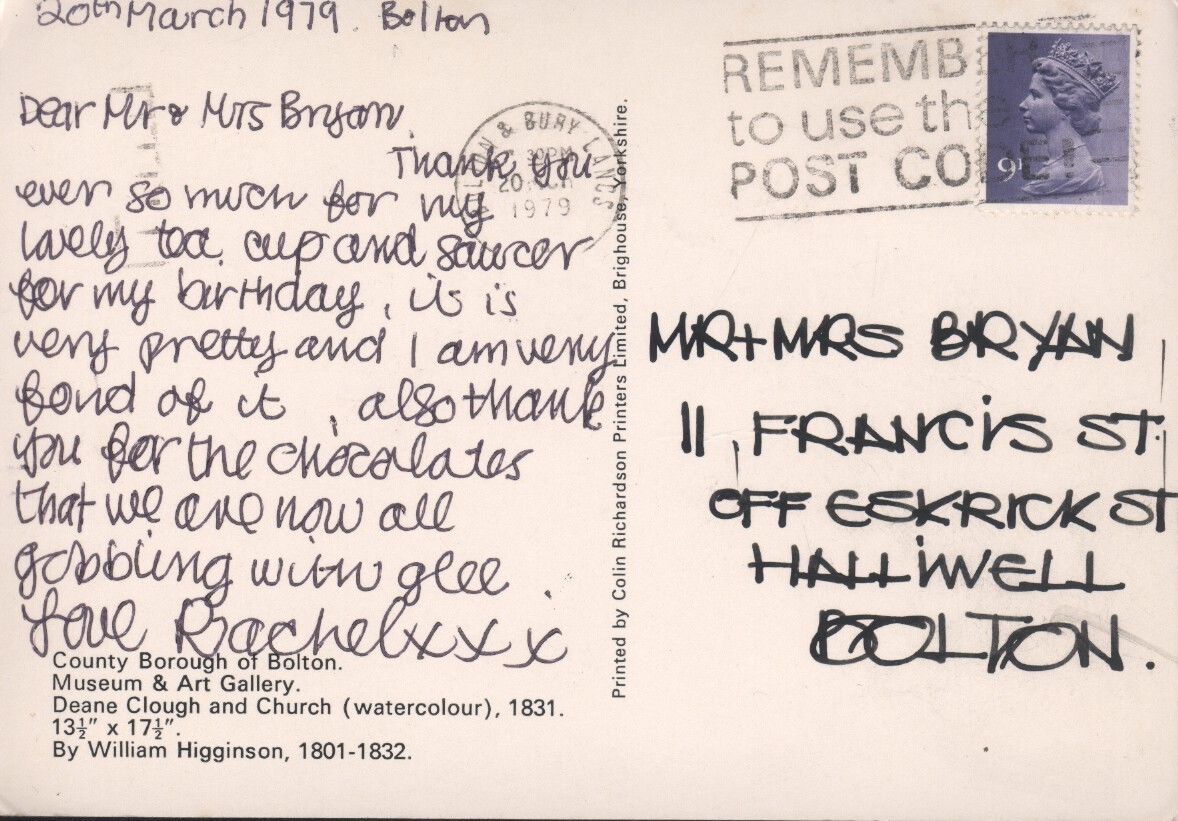 20th March 1979. Bolton
Dear Mr & Mrs Bryan,
Thank you
ever so much for my
lovely tea cup and saucer
for my birthday, it is
very pretty and I am very
fond of it, also thank
you for the chocolates
that we are now all
gobbling with glee.
Love Rachel x x x
County Borough of Bolton.
Museum & Art Gallery.
Deane Clough and Church (watercolour), 1831.
13½" x 17½".
By William Higginson, 1801-1832.
Printed by Colin Richardson Printers Limited, Brighouse, Yorkshire.
N & BURY LANCS
30PM
20
1979
REMEMB
to use the
POST CODE
9P
MR + MRS BRYAN
11, FRANCIS ST.
OFF ESKRICK ST
HALLIWELL
BOLTON.